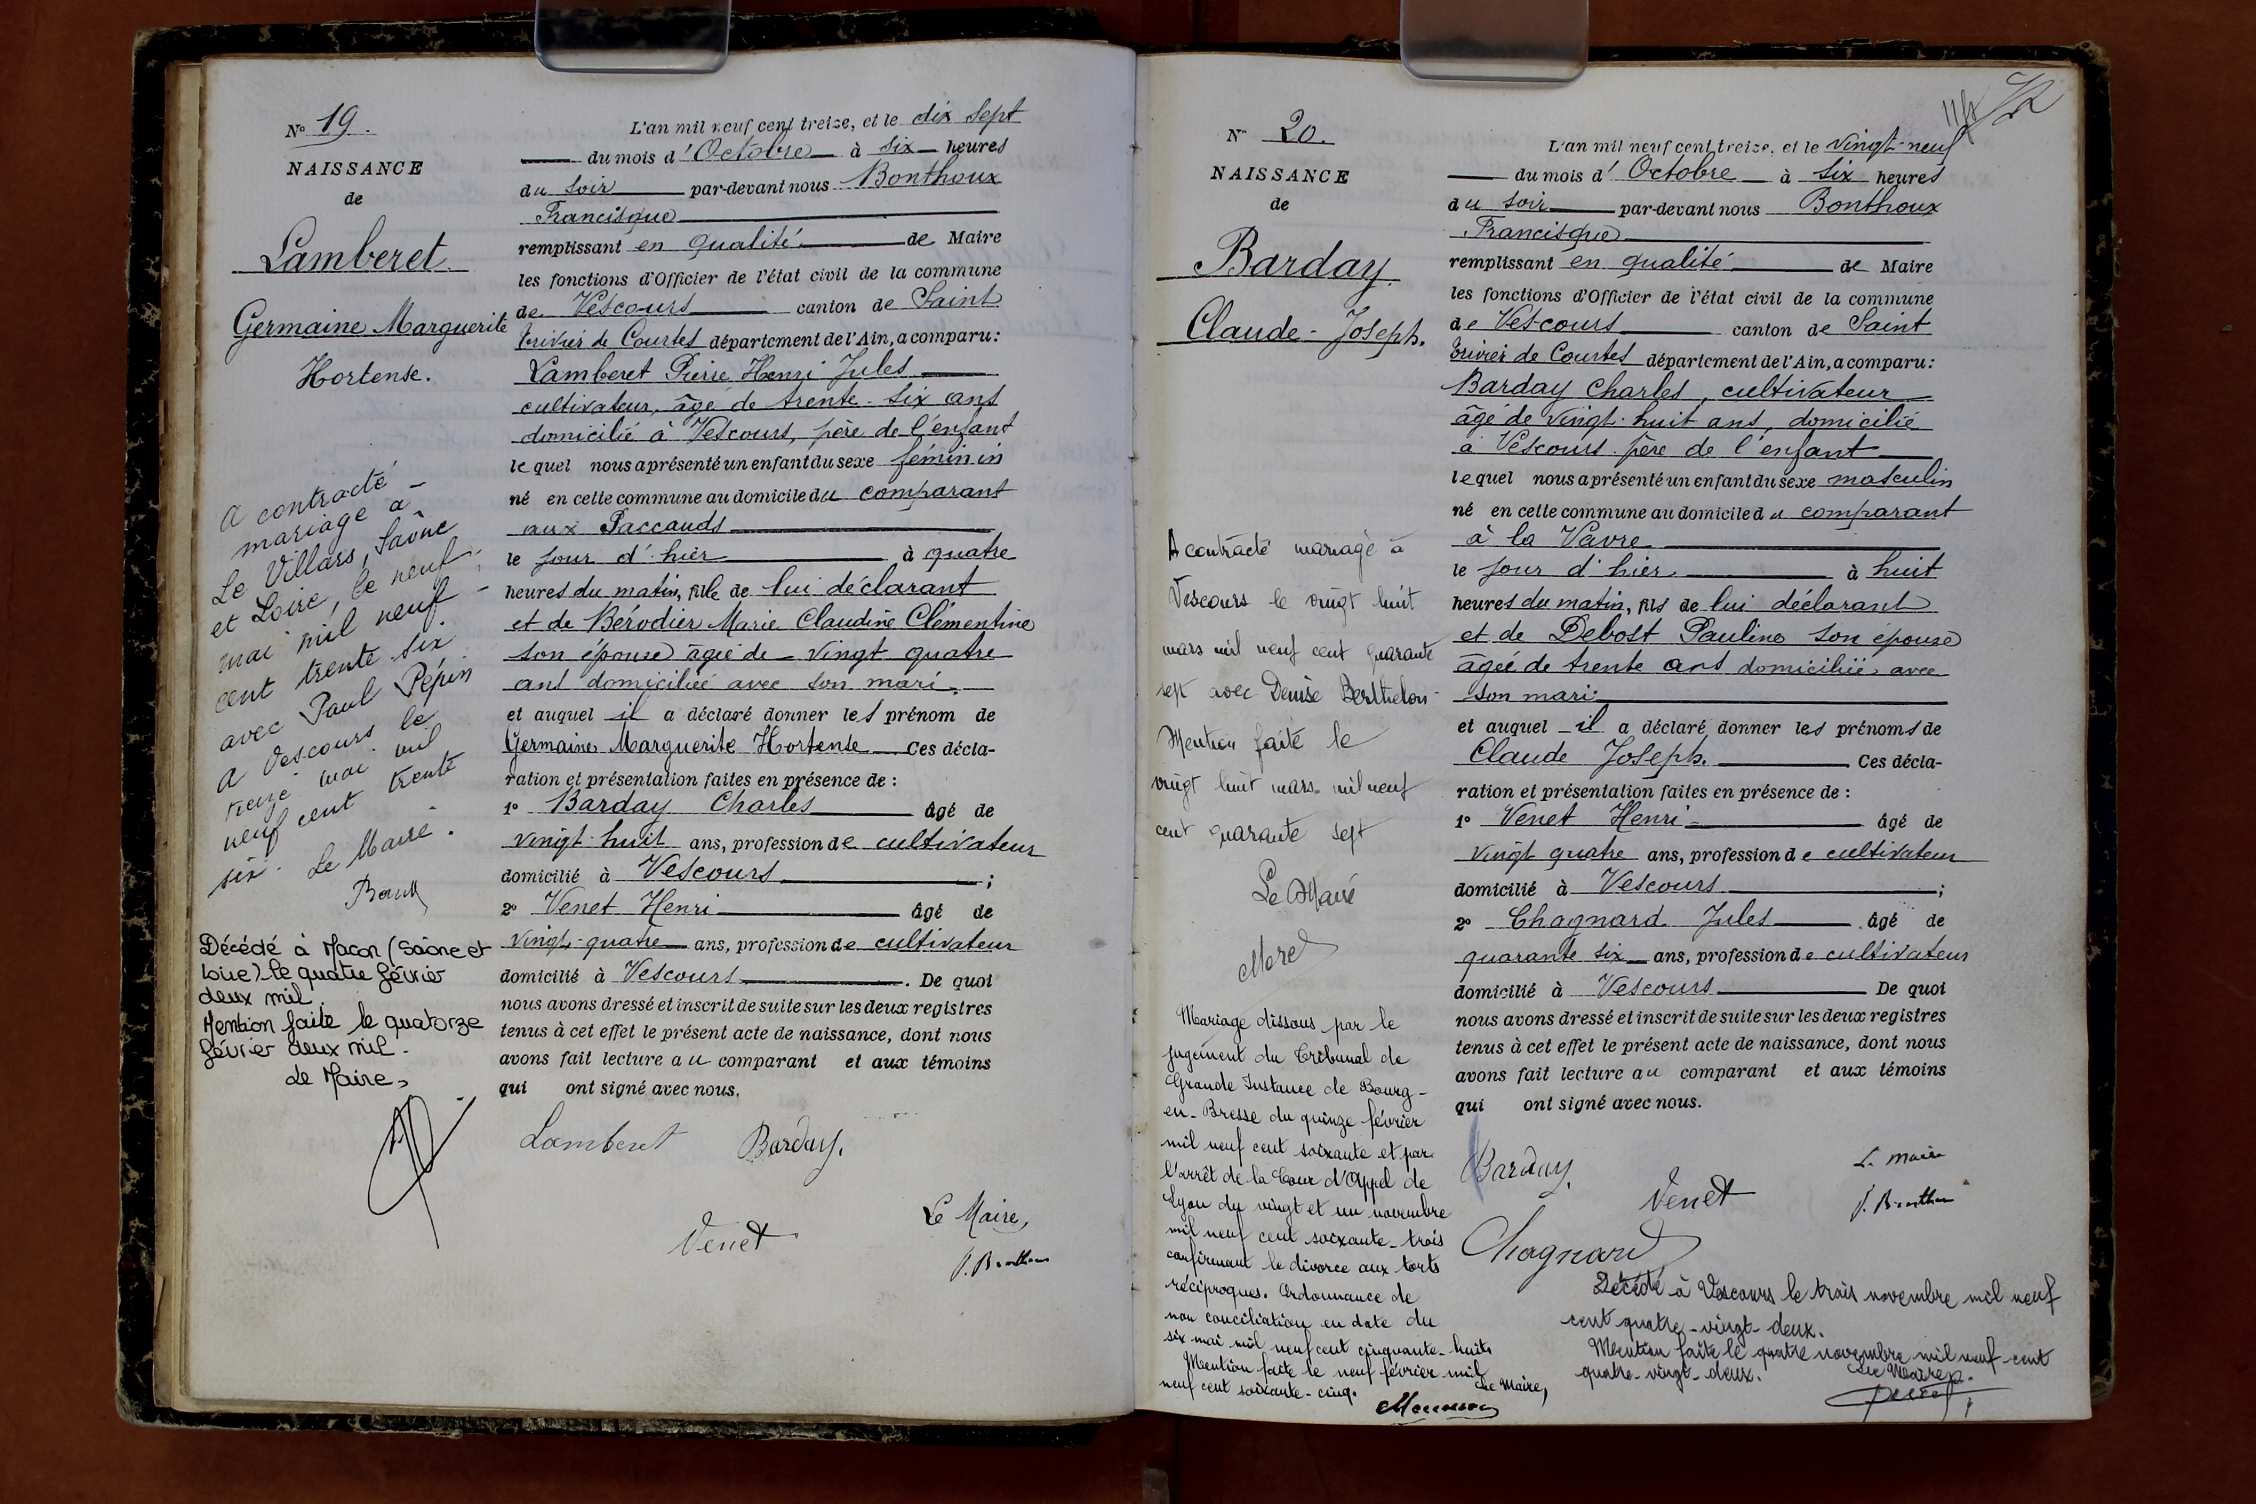 Nº 19.
NAISSANCE
de
Lamberet
Germaine Marguerite
Hortense.
A contracté
mariage à
Le Villars, Saône
et Loire, le neuf
mai mil neuf
cent trente six
avec Paul Pépin
A Vescours le
treize mai mil
neuf cent trente
six. Le Maire.
Décédé à Macon (Saône et
Loire) le quatre février
deux mil.
Mention faite le quatorze
février deux mil.
Le Maire,
L'an mil neuf cent treize, et le dix sept
du mois d'Octobre à six heures
du soir par-devant nous Bonthoux
Francisque
remplissant en qualité de Maire
les fonctions d'Officier de l'état civil de la commune
de Vescours canton de Saint
Trivier de Courtes département de l'Ain, a comparu:
Lamberet Pierre Henri Jules
cultivateur, âgé de trente-six ans
domicilié à Vescours, père de l'enfant
lequel nous a présenté un enfant du sexe féminin
né en cette commune au domicile du comparant
aux Paccauds
le jour d'hier à quatre
heures du matin, fille de lui déclarant
et de Bérodier Marie Claudine Clémentine
son épouse âgée de vingt quatre
ans domiciliée avec son mari.
et auquel il a déclaré donner les prénom de
Germaine Marguerite Hortense Ces décla-
ration et présentation faites en présence de :
1º Barday Charles âgé de
vingt-huit ans, profession de cultivateur
domicilié à Vescours ;
2º Venet Henri âgé de
vingt-quatre ans, profession de cultivateur
domicilié à Vescours . De quoi
nous avons dressé et inscrit de suite sur les deux registres
tenus à cet effet le présent acte de naissance, dont nous
avons fait lecture au comparant et aux témoins
qui ont signé avec nous.
Lamberet Barday.
Venet Le Maire,
F. Bonthoux
Nº 20.
NAISSANCE
de
Barday
Claude-Joseph.
A contracté mariage à
Vescours le vingt huit
mars mil neuf cent quarante
sept avec Denise Berthelon
Mention faite le
vingt huit mars mil neuf
cent quarante sept
Le Maire
Morel
Mariage dissous par le
jugement du Tribunal de
Grande Instance de Bourg-
en-Bresse du quinze février
mil neuf cent soixante et par
l'arrêt de la Cour d'Appel de
Lyon du vingt et un novembre
mil neuf cent soixante-trois
confirmant le divorce aux torts
réciproques. Ordonnance de
non conciliation en date du
six mai mil neuf cent cinquante-huit.
Mention faite le neuf février mil
neuf cent soixante-cinq. Le Maire,
L'an mil neuf cent treize, et le vingt-neuf
du mois d'Octobre à six heures
du soir par-devant nous Bonthoux
Francisque
remplissant en qualité de Maire
les fonctions d'Officier de l'état civil de la commune
de Vescours canton de Saint
Trivier de Courtes département de l'Ain, a comparu:
Barday Charles, cultivateur
âgé de vingt-huit ans, domicilié
à Vescours père de l'enfant
lequel nous a présenté un enfant du sexe masculin
né en cette commune au domicile du comparant
à la Vavre
le jour d'hier à huit
heures du matin, fils de lui déclarant
et de Debost Pauline son épouse
âgée de trente ans domiciliée avec
son mari
et auquel il a déclaré donner les prénoms de
Claude Joseph. Ces décla-
ration et présentation faites en présence de :
1º Venet Henri âgé de
vingt quatre ans, profession de cultivateur
domicilié à Vescours ;
2º Chagnard Jules âgé de
quarante six ans, profession de cultivateur
domicilié à Vescours De quoi
nous avons dressé et inscrit de suite sur les deux registres
tenus à cet effet le présent acte de naissance, dont nous
avons fait lecture au comparant et aux témoins
qui ont signé avec nous.
Barday. Venet L. Maire
F. Bonthoux
Chagnard
Décédé à Vescours le trois novembre mil neuf
cent quatre-vingt-deux.
Mention faite le quatre novembre mil neuf cent
quatre-vingt-deux. Le Maire.